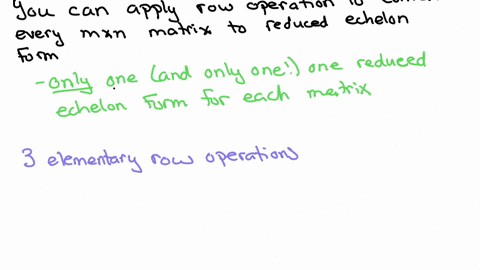 You can apply row operation to
every mxn matrix to reduced echelon
form
- only one (and only one!) one reduced
echelon form for each matrix
3 elementary row operations